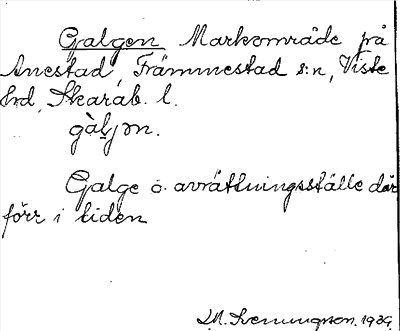 Galgen Markområde på
Anestad, Främmestad s:n, Viste
hd, Skarab. l.
gàljən.
Galge o. avrättningsställe där
förr i tiden
M. Svenungson. 1939.